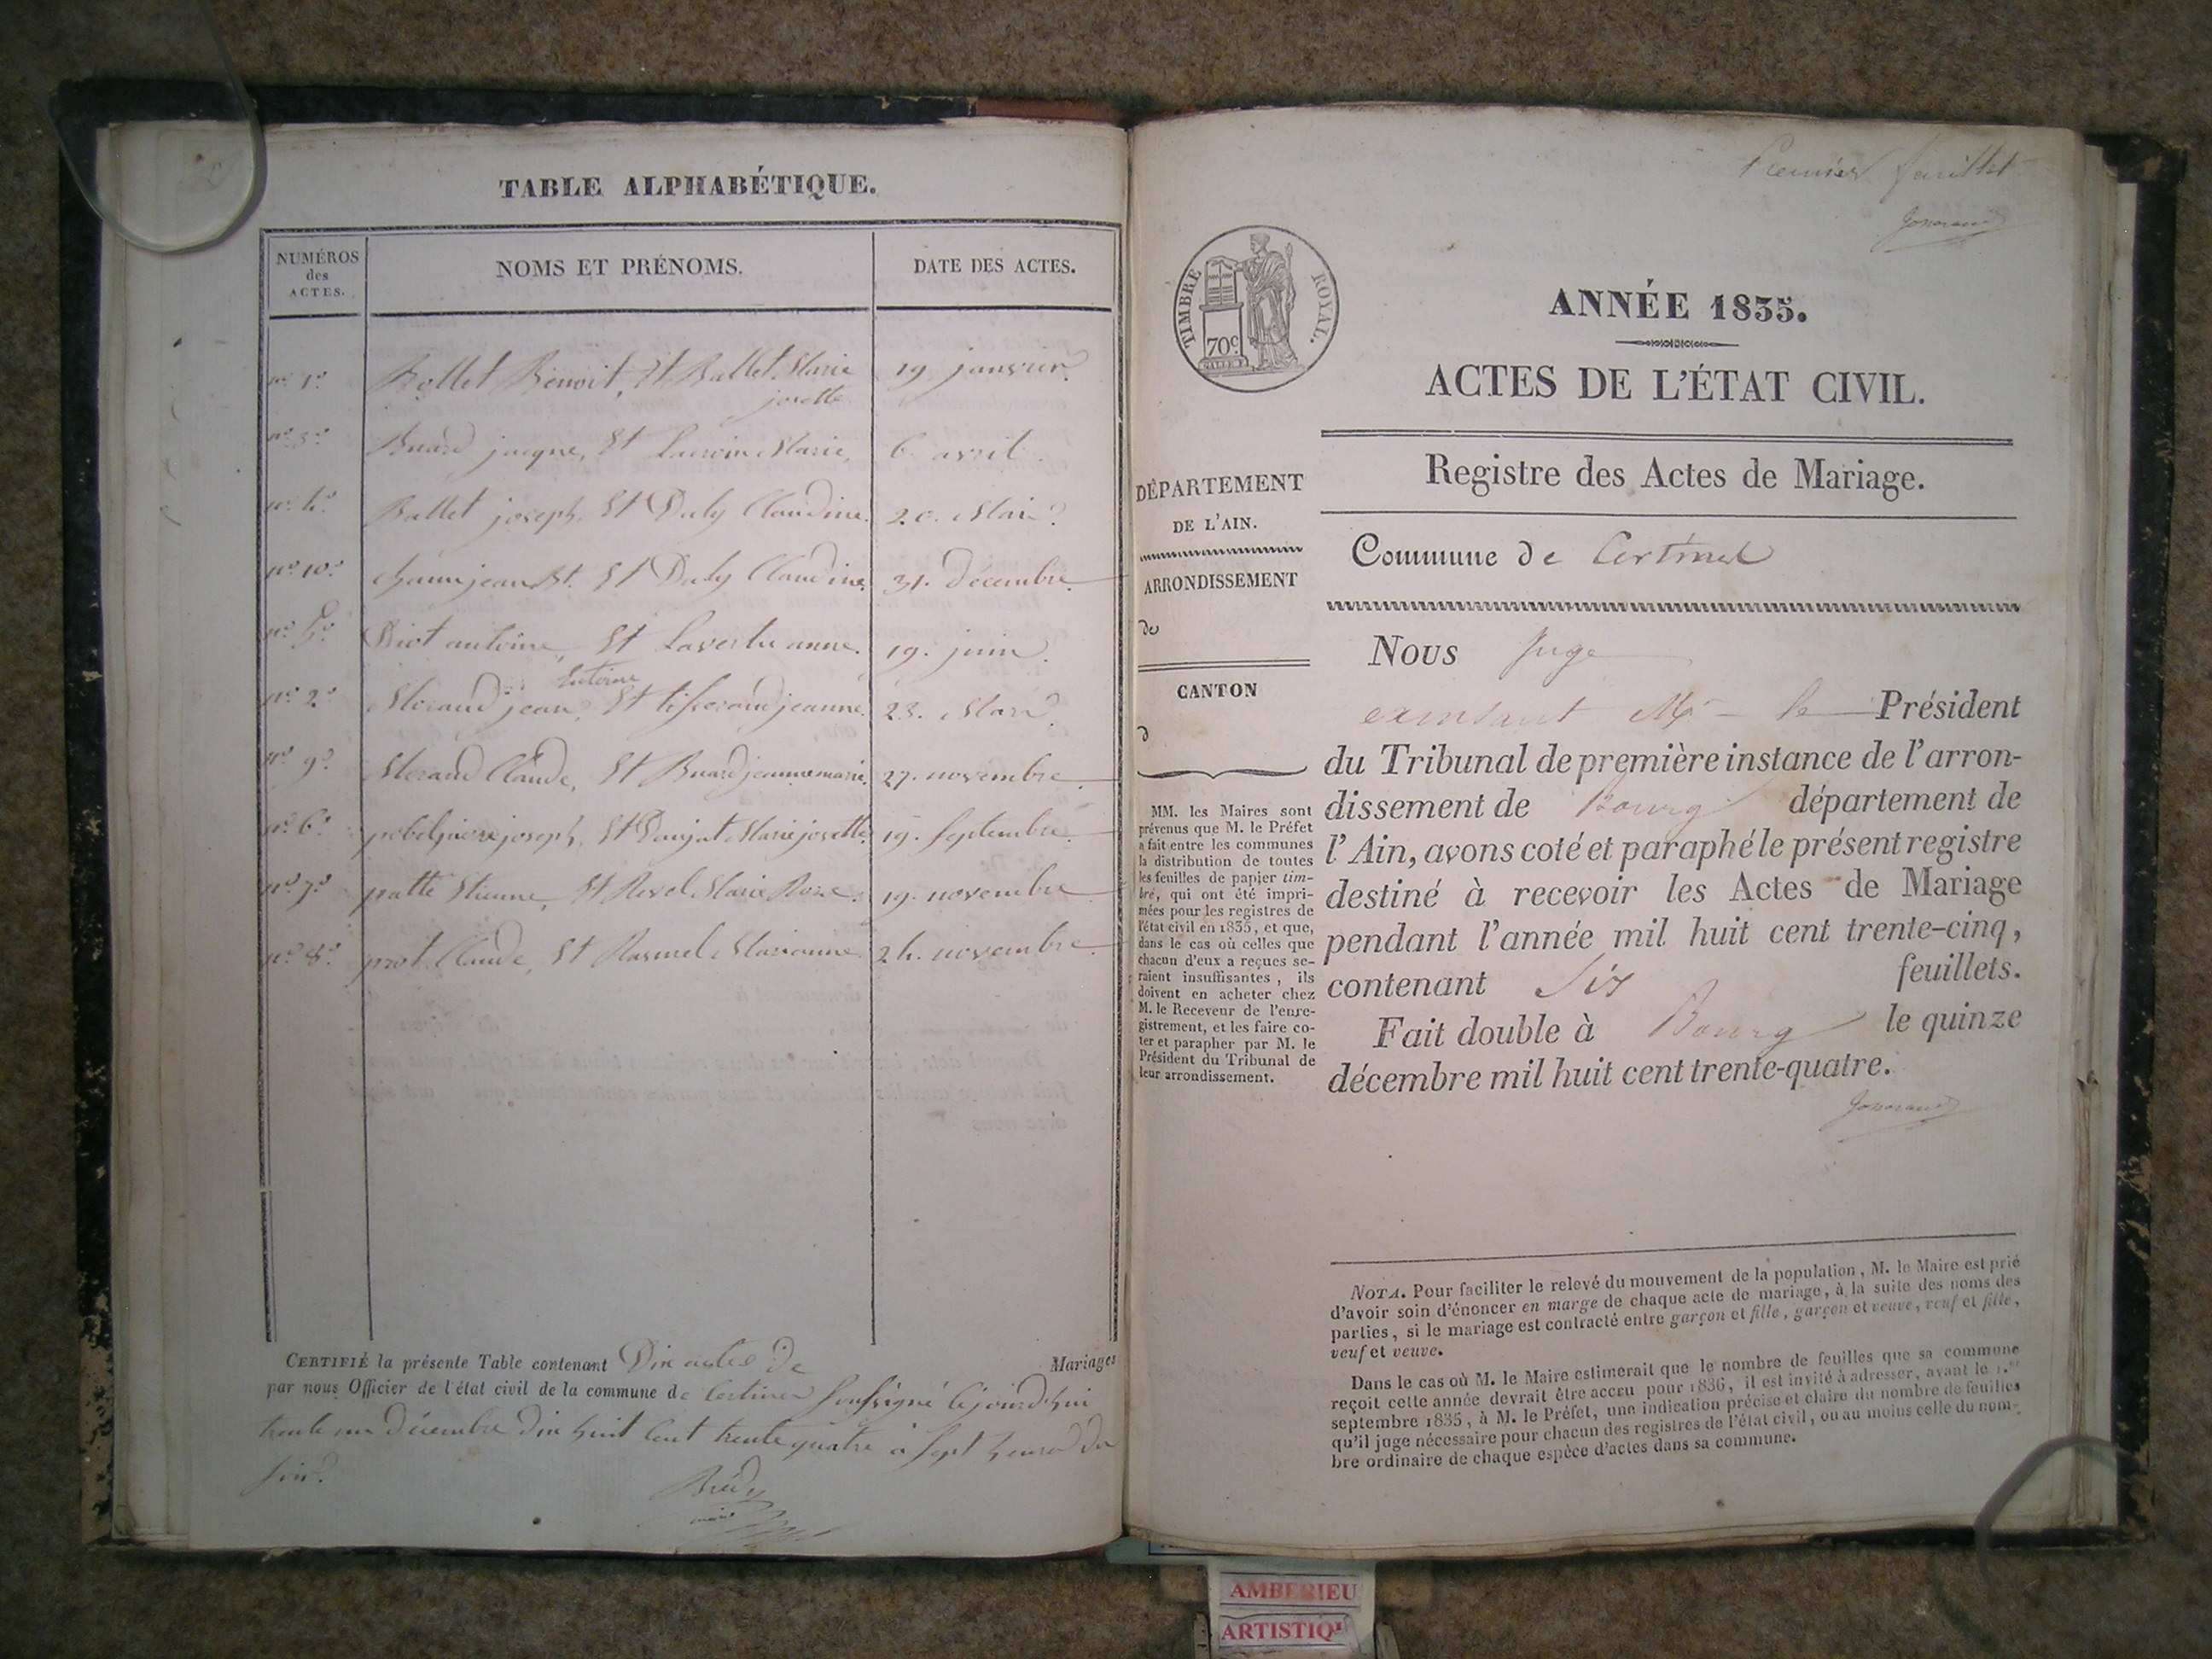 TABLE ALPHABÉTIQUE.
NUMÉROS
des
ACTES.
NOMS ET PRÉNOMS.
DATE DES ACTES.
nº 1º Benoit, Et Ballet Marie josette 19 janvier
nº 3º Buard jacque, Et Marie, 6 avril.
nº 4º Ballet joseph, Et Daly Claudine. 20.
nº 10º jean Bt. Et Daly Claudine. 31. décembre.
nº 5º Diot antoine, Et Lavertu anne. 19. juin.
nº 2º Morand jean Antoine, Et jeanne. 23.
nº 9º Morand Claude, Et Buard jeannemarie. 27. novembre.
nº 6º joseph, Et Marie josette. 19. septembre.
nº 7º patte Etienne, Et Revel Marie Rose. 19. novembre
nº 8º prot Claude, Et Marianne. 24. novembre
CERTIFIÉ la présente Table contenant Dix actes de Mariages
par nous Officier de l'état civil de la commune de Certines soussigné Cejourd'hui
trente un Décembre Dix huit Cent trente quatre à sept heures du
soir.
Premier feuillet
TIMBRE ROYAL.
70c
ANNÉE 1835.
ACTES DE L'ÉTAT CIVIL.
Registre des Actes de Mariage.
DÉPARTEMENT
DE L'AIN.
ARRONDISSEMENT
de
CANTON
d
MM. les Maires sont
prévenus que M. le Préfet
a fait entre les communes
la distribution de toutes
les feuilles de papier tim-
bré, qui ont été impri-
mées pour les registres de
l'état civil en 1835, et que,
dans le cas où celles que
chacun d'eux a reçues se-
raient insuffisantes, ils
doivent en acheter chez
M. le Receveur de l'enre-
gistrement, et les faire co-
ter et parapher par M. le
Président du Tribunal de
leur arrondissement.
Commune de Certines
Nous Juge
M. le Président
du Tribunal de première instance de l'arron-
dissement de Bourg département de
l'Ain, avons coté et paraphé le présent registre
destiné à recevoir les Actes de Mariage
pendant l'année mil huit cent trente-cinq,
contenant Six feuillets.
Fait double à Bourg le quinze
décembre mil huit cent trente-quatre.
NOTA. Pour faciliter le relevé du mouvement de la population, M. le Maire est prié
d'avoir soin d'énoncer en marge de chaque acte de mariage, à la suite des noms des
parties, si le mariage est contracté entre garçon et fille, garçon et veuve, veuf et fille,
veuf et veuve.
Dans le cas où M. le Maire estimerait que le nombre de feuilles que sa commune
reçoit cette année devrait être accru pour 1836, il est invité à adresser, avant le 1.er
septembre 1835, à M. le Préfet, une indication précise et claire du nombre de feuilles
qu'il juge nécessaire pour chacun des registres de l'état civil, ou au moins celle du nom-
bre ordinaire de chaque espèce d'actes dans sa commune.
AMBERIEU
ARTISTIQ